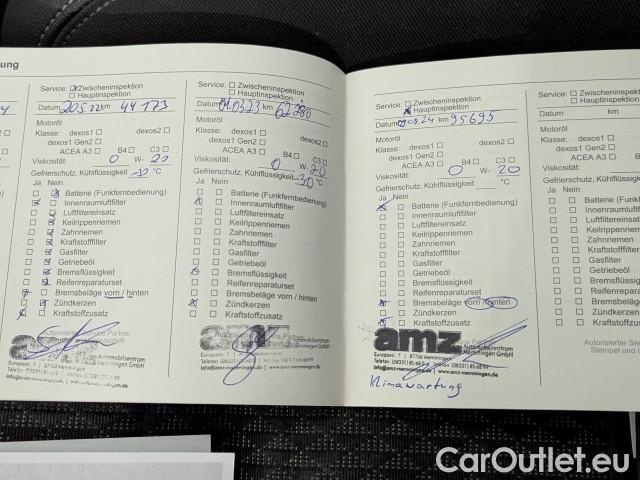 Service: Zwischeninspektion
Hauptinspektion
Datum 20.5.22 km 44 173
Motoröl
Klasse: dexos1 dexos2
dexos1 Gen2
ACEA A3 B4 C3
Viskosität: 0 W- 20
Gefrierschutz, Kühlflüssigkeit °C
Ja Nein
Batterie (Funkfernbedienung)
Innenraumluftfilter
Luftfiltereinsatz
Keilrippenriemen
Zahnriemen
Kraftstofffilter
Gasfilter
Getriebeöl
Bremsflüssigkeit
Reifenreparaturset
Bremsbeläge vorn / hinten
Zündkerzen
Kraftstoffzusatz
Service: Zwischeninspektion
Hauptinspektion
Datum 01.03.23 km 62 280
Motoröl
Klasse: dexos1 dexos2
dexos1 Gen2
ACEA A3 B4 C3
Viskosität: 0 W- 20
Gefrierschutz, Kühlflüssigkeit -30 °C
Ja Nein
Batterie (Funkfernbedienung)
Innenraumluftfilter
Luftfiltereinsatz
Keilrippenriemen
Zahnriemen
Kraftstofffilter
Gasfilter
Getriebeöl
Bremsflüssigkeit
Reifenreparaturset
Bremsbeläge vorn / hinten
Zündkerzen
Kraftstoffzusatz
amz
Service: Zwischeninspektion
Hauptinspektion
Datum 08.24 km 95695
Motoröl
Klasse: dexos1 dexos2
dexos1 Gen2
ACEA A3 B4 C3
Viskosität: 0 W- 20
Gefrierschutz, Kühlflüssigkeit °C
Ja Nein
Batterie (Funkfernbedienung)
Innenraumluftfilter
Luftfiltereinsatz
Keilrippenriemen
Zahnriemen
Kraftstofffilter
Gasfilter
Getriebeöl
Bremsflüssigkeit
Reifenreparaturset
Bremsbeläge vorn / hinten
Zündkerzen
Kraftstoffzusatz
amz Automobilzentrum
Memmingen GmbH
Europastr. 7 | 87700 Memmingen
info@amz-memmingen.de
Klimawartung
Service: Zwischeninspektion
Hauptinspektion
Datum km
Motoröl
Klasse: dexos1
dexos1 Gen2
ACEA A3
Viskosität:
Gefrierschutz, Kühlflüssigkeit
Ja Nein
Batterie
Innenraumluftfilter
Luftfiltereinsatz
Keilrippenriemen
Zahnriemen
Kraftstofffilter
Gasfilter
Getriebeöl
Bremsflüssigkeit
Reifenreparaturset
Bremsbeläge
Zündkerzen
Kraftstoffzusatz
CarOutlet.eu